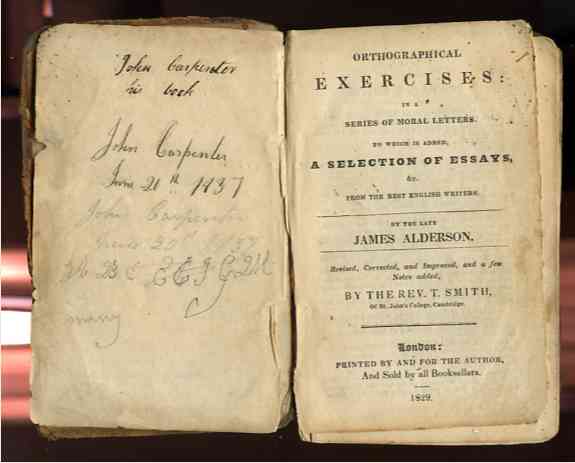 John Carpenter
his book
John Carpenter
June 20th 1837
John Carpenter
June 20 1837
A B C E E F G H
many
ORTHOGRAPHICAL
EXERCISES:
IN A
SERIES OF MORAL LETTERS.
TO WHICH IS ADDED,
A SELECTION OF ESSAYS,
&c.
FROM THE BEST ENGLISH WRITERS.
BY THE LATE
JAMES ALDERSON,
Revised, Corrected, and Improved, and a few
Notes added,
BY THE REV. T. SMITH,
Of St. John's College, Cambridge.
London:
PRINTED BY AND FOR THE AUTHOR,
And Sold by all Booksellers.
1829.